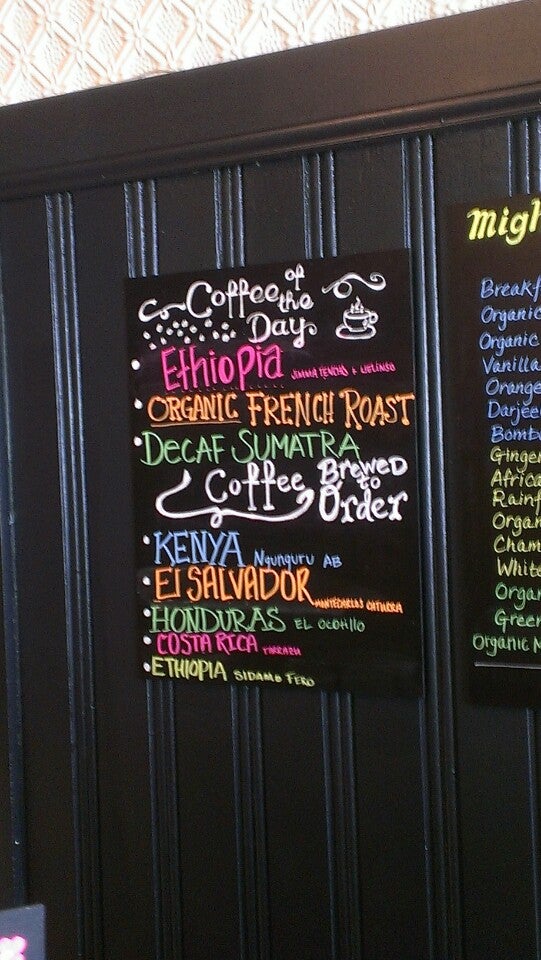 Coffee of the Day
Ethiopia
ORGANIC FRENCH ROAST
DECAF SUMATRA
Coffee Brewed to Order
KENYA Ngunguru AB
El SALVADOR
HONDURAS EL OCOTILLO
COSTA RICA TARRAZU
ETHIOPIA SIDAMO FERO
Migh
Breakf
Organic
Organic
Vanilla
Orange
Darjee
Bomb
Ginger
Africa
Rainf
Organ
Cham
White
Orga
Green
Organic M